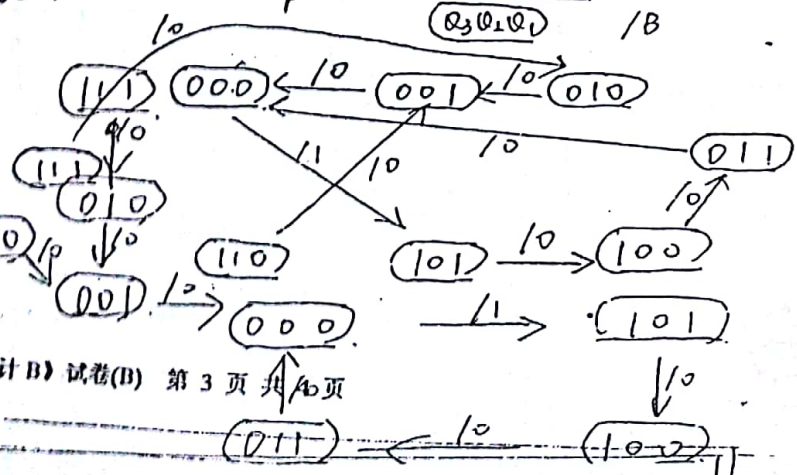 Q3Q2Q1 /B
/0
111 000 /0 001 /0 010
/0 /0 011
111 /1 /0 /0
010
0 /0 /0 110 101 /0 100
001 /0 000 /1 101
计B》试卷(B) 第 3 页 共 页 /0
/0
011 /0 100